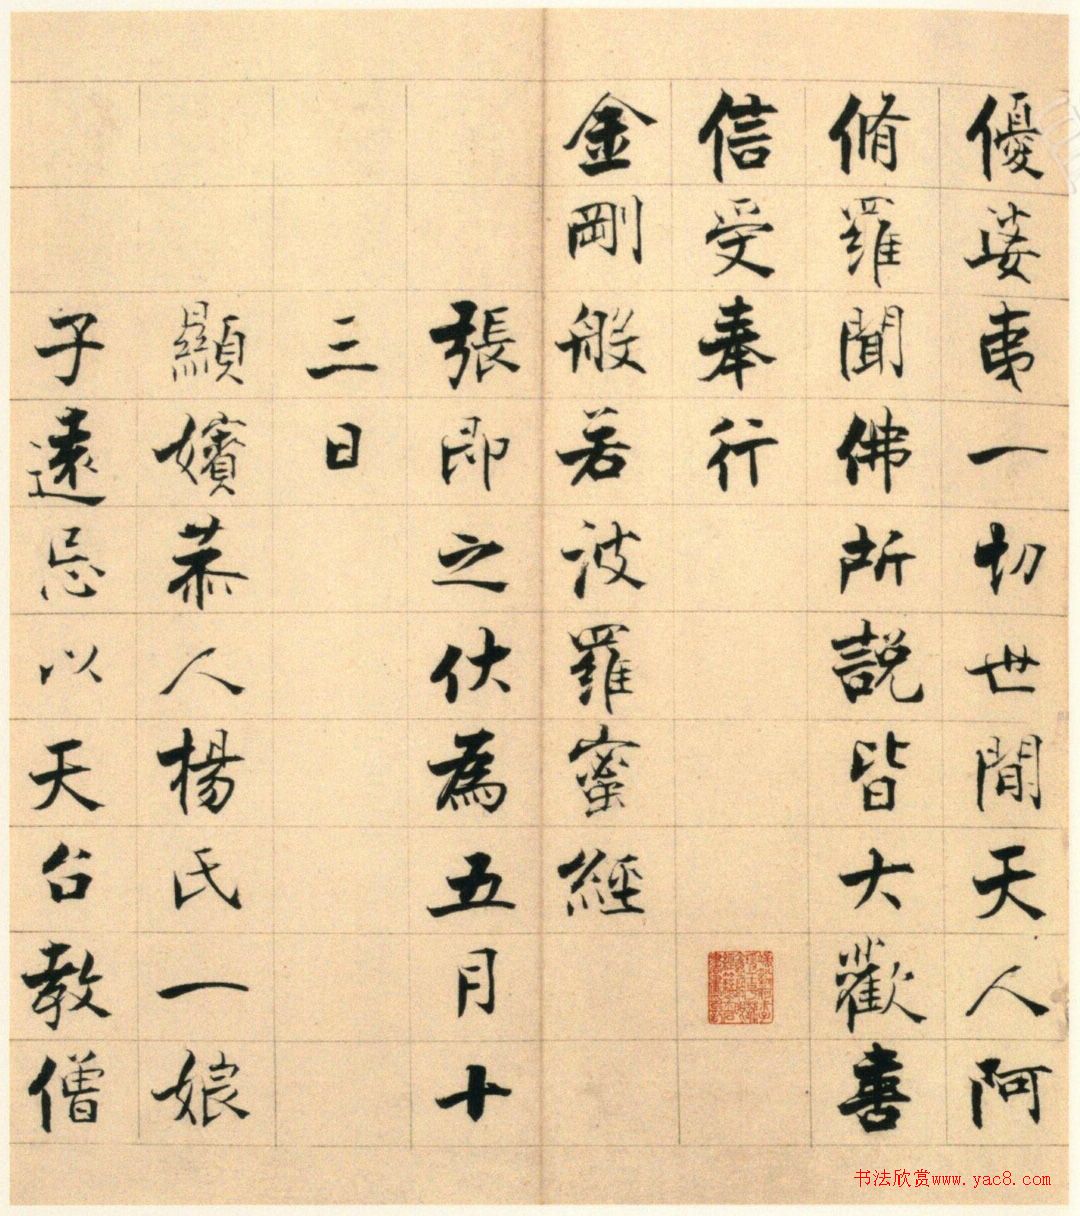 優婆夷一切世間天人阿
脩羅聞佛所說皆大歡喜
信受奉行
金剛般若波羅蜜經
張即之伏為五月十
三日
顯嬪恭人楊氏一娘
子遠忌以天台教僧
书法欣赏www.yac8.com